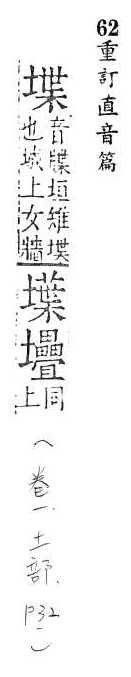 62重訂直音篇
堞音牒垣維堞也城上女牆䑓壘同上
(卷一、土部、P32)